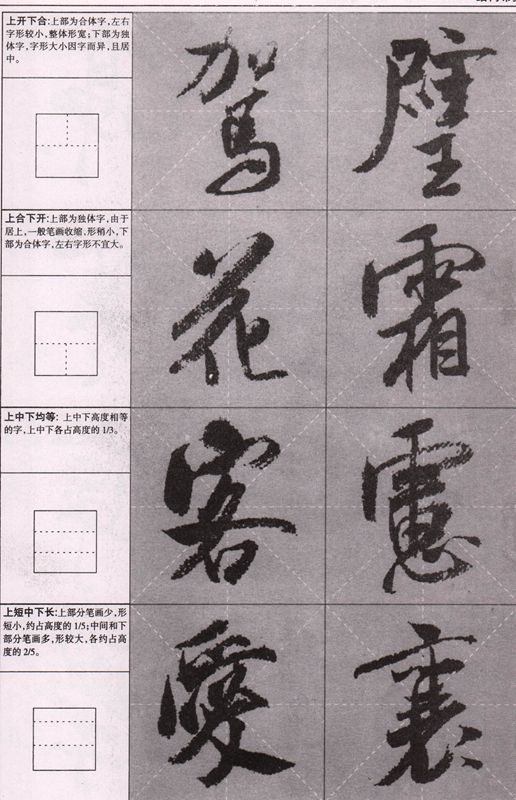 上开下合:上部为合体字,左右
字形较小,整体形宽;下部为独
体字,字形大小因字而异,且居
中。
驾 璧
上合下开:上部为独体字,由于
居上,一般笔画收缩,形稍小,下
部为合体字,左右字形不宜大。
花 霜
上中下均等: 上中下高度相等
的字,上中下各占高度的 1/3。
客
上短中下长:上部分笔画少,形
短小,约占高度的 1/5;中间和下
部分笔画多,形较大,各约占高
度的 2/5。
愛